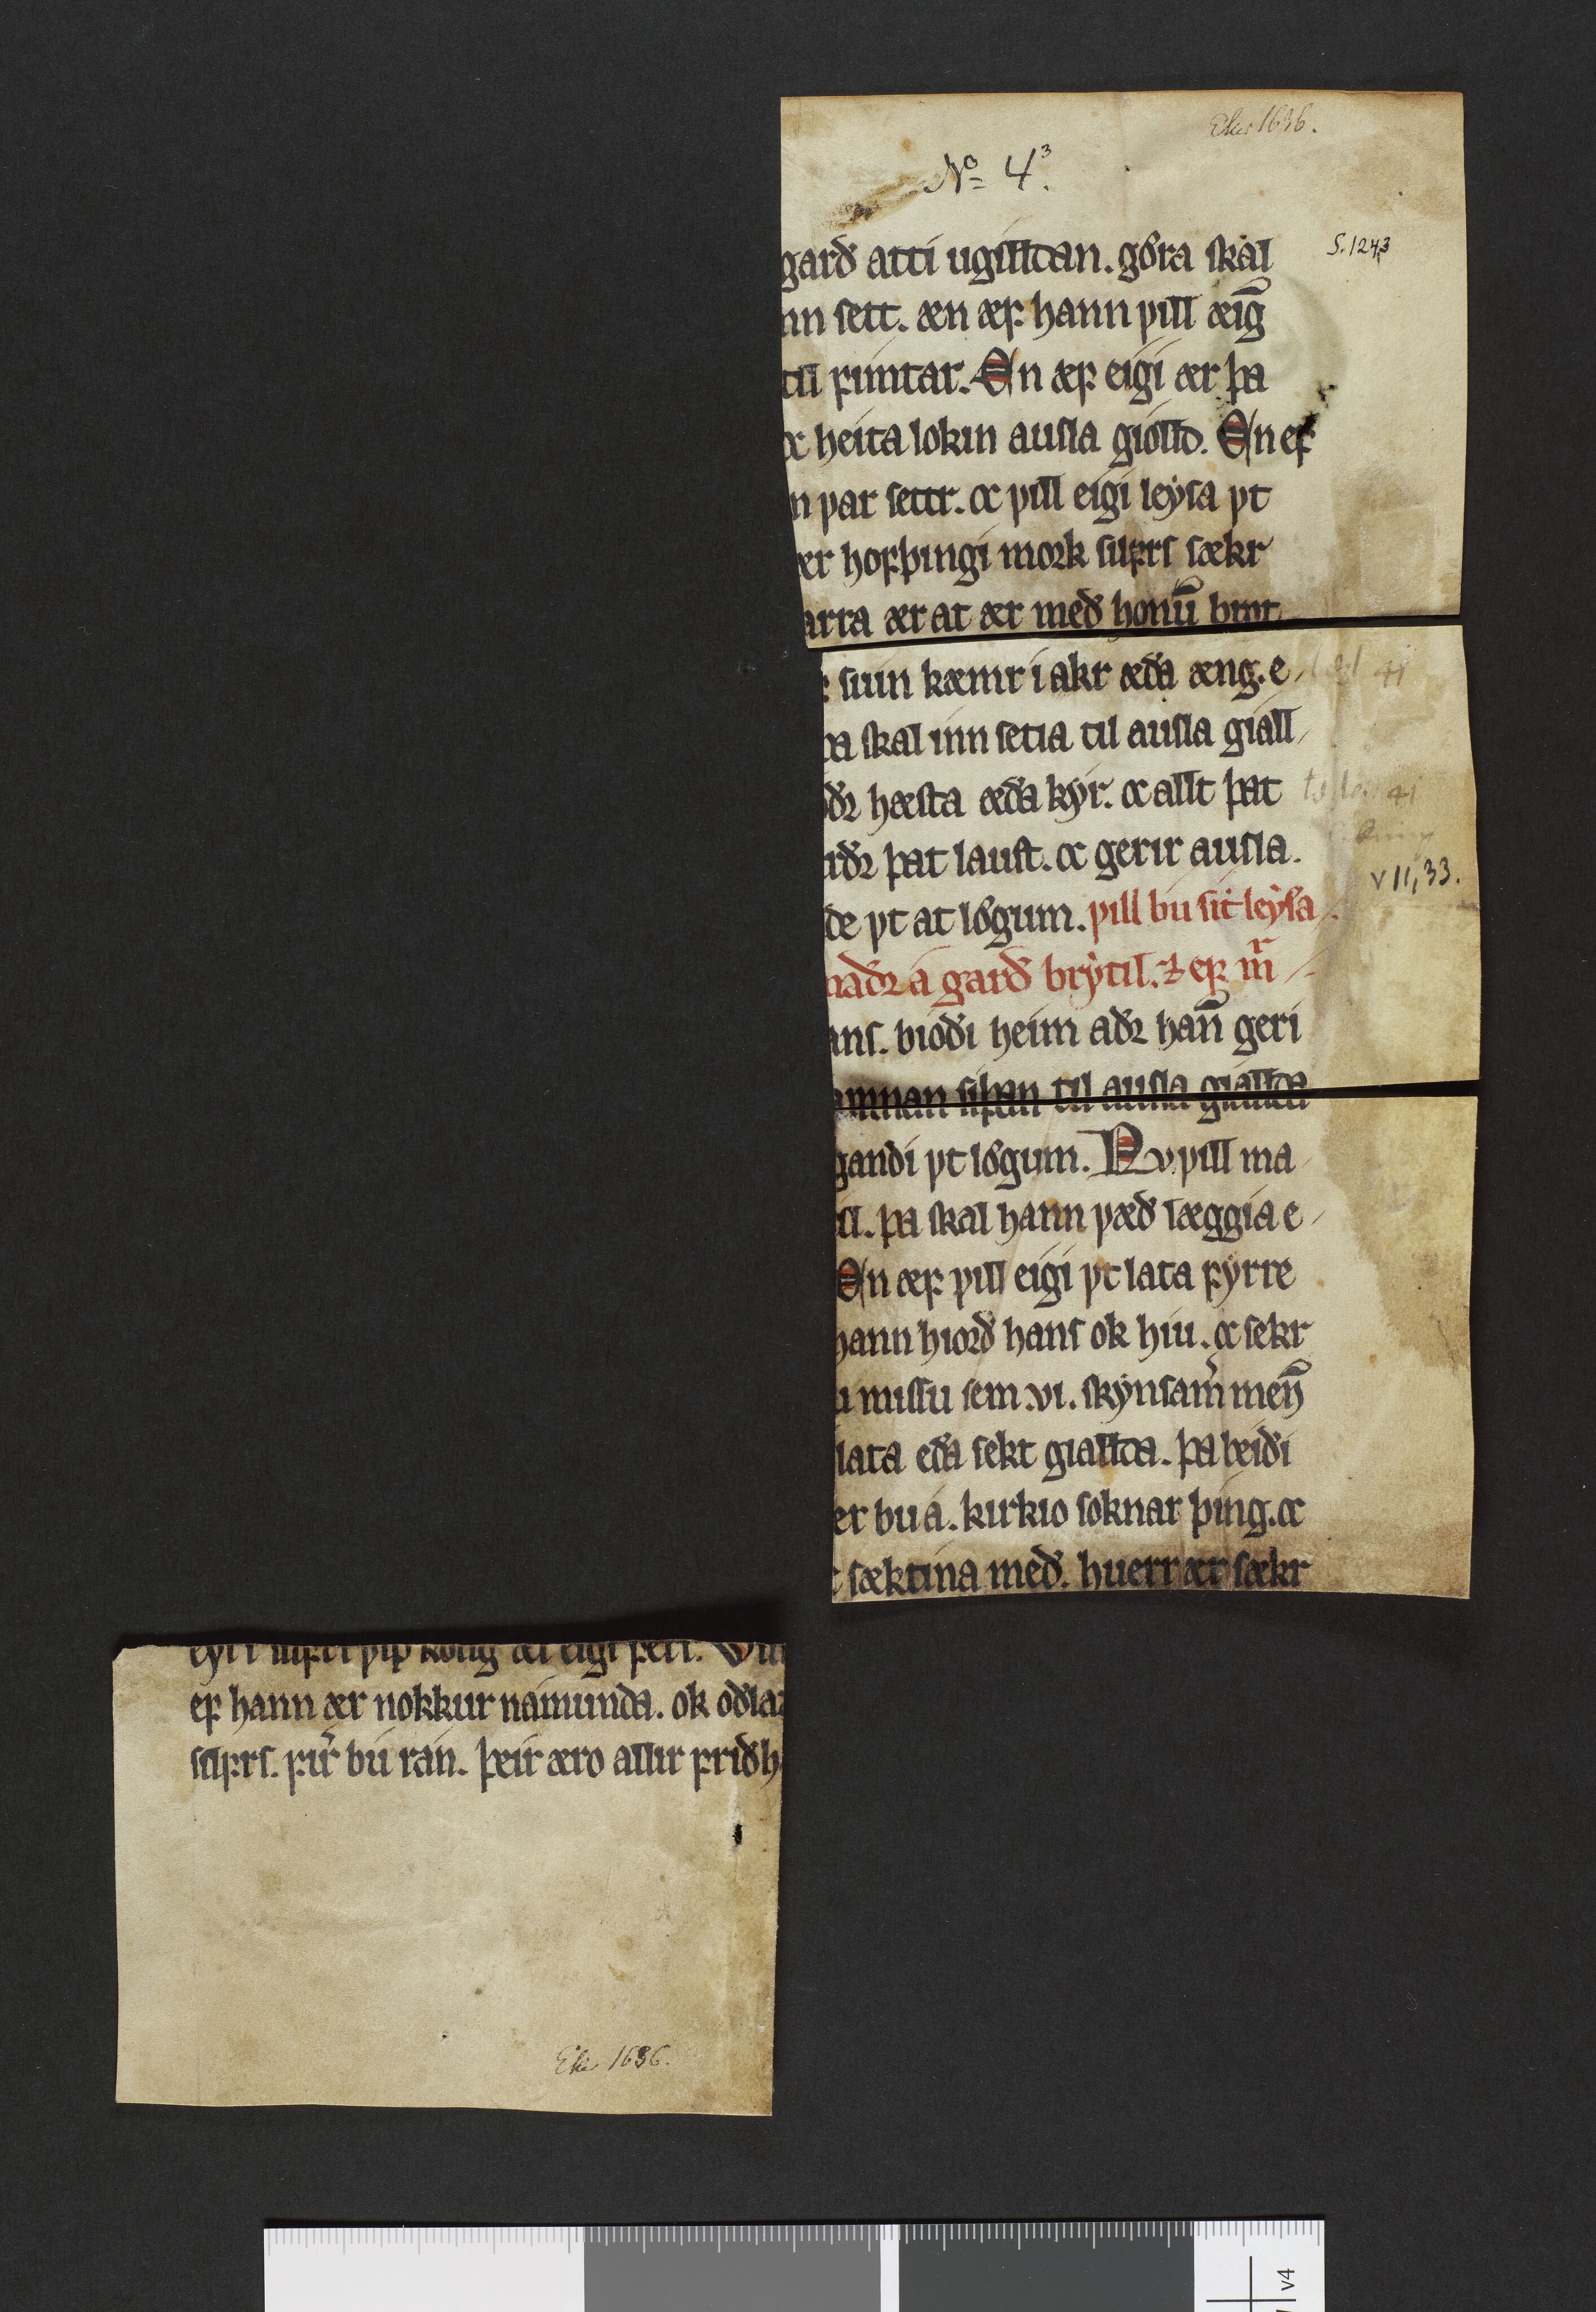 Eker 1636.
No 4³.
garð atti ugilldan. gỏra skal
S. 124,3
nn sett. æn æf hann vill æig̅
til fimtar. En æf eigi ær þa
ok heita lokin ausla giolld. En ef
n var settr. ok vill eigi leysa vt
er hofþingi mork silfrs sækr
arra ær at ær með honu̅ brǫt
suin kæmr i akr æða æng. e
a skal inn setia til ausla giall
ðr hæsta æða kyr. ok allt þat
rðr þat laust. ok gerir ausla.
VII, 33.
de vt at lỏgum. vill bu sit leysa
maðr a garð brytil. ⁊ ef mr̅
ans. bioði heim aðr han̅ geri
amnan siþan til ausla giallda
gandi vt lỏgum. Nv vill ma
il. þa skal hann væð læggia e
En æf vill eigi vt lata fyrre
hann hiorð hans ok hiu. ok sekr
u missu sem .vi. skynsam̅ men̅
lata eða sekt giallda. þa beiði
er bu a. kirkio soknar þing. ok
sæktina með. huerr ær sækr
eyri silfrs við kong æf eigi ferr.
ef hann ær nokkur namunda. ok oðlar
silfrs. fir̅ bu ran. þeir æro allir friðh
Eker 1636.
v4